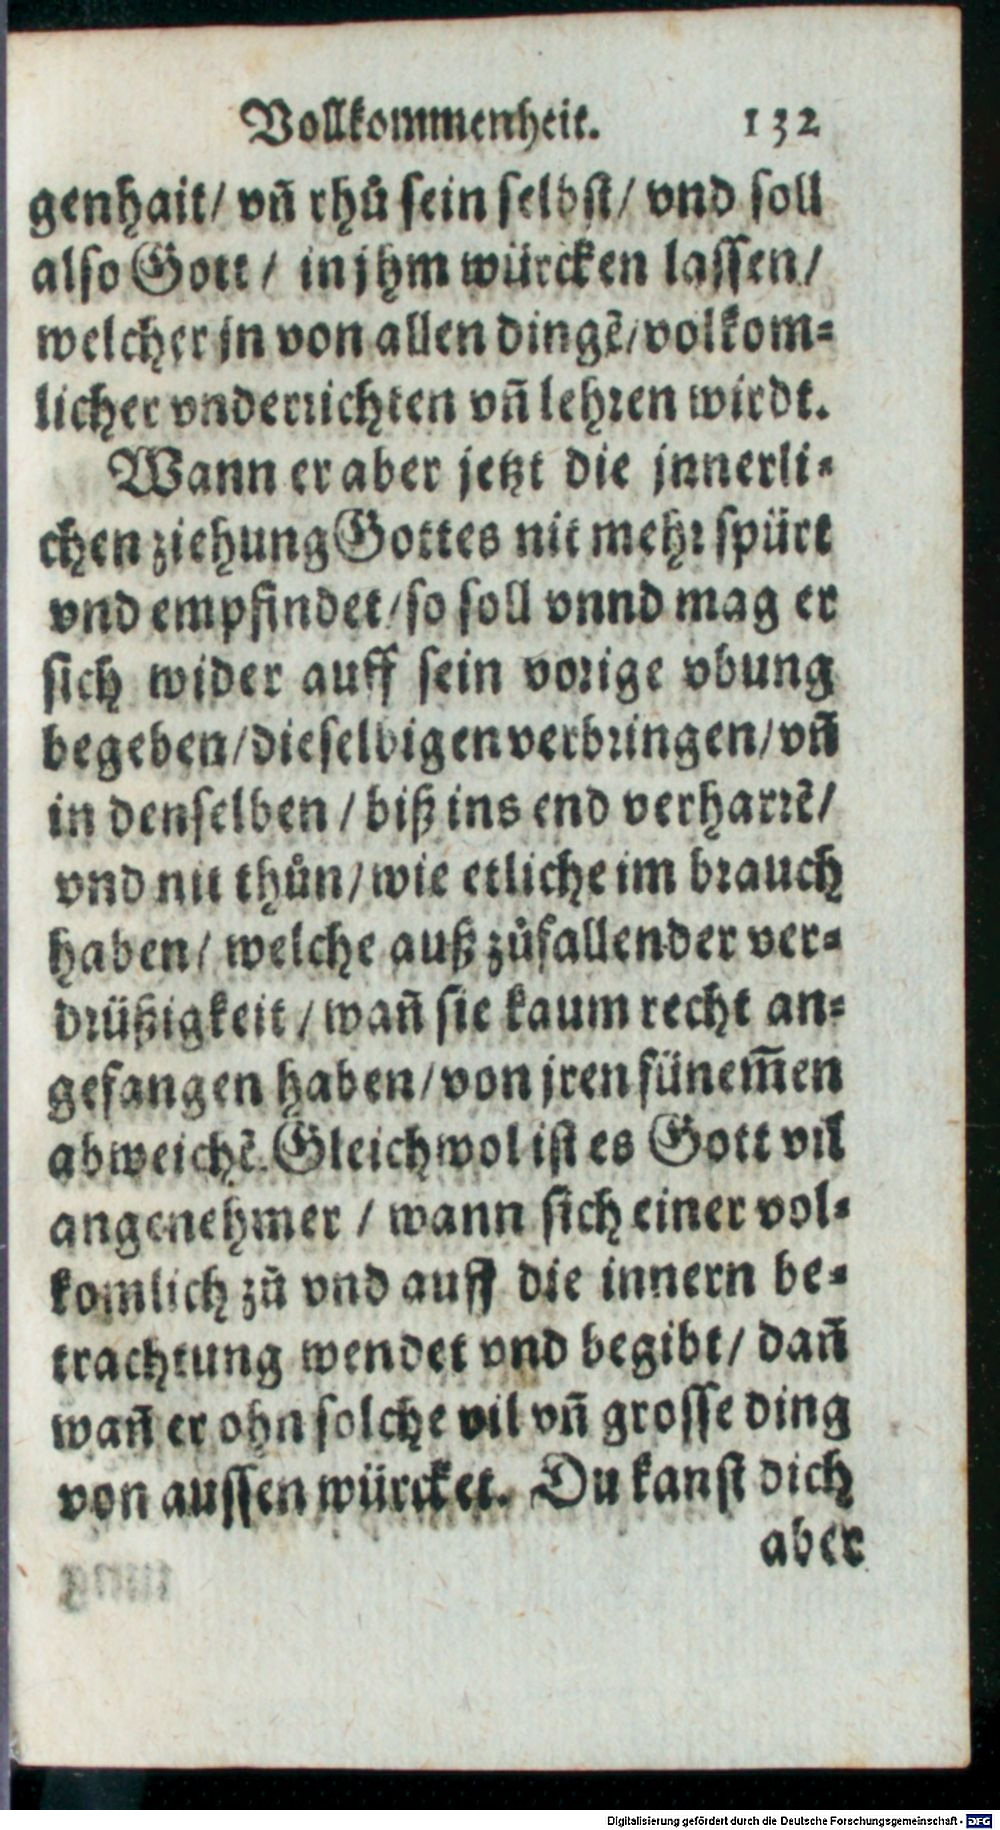 Vollkommenheit. 132
genhait/ vñ rhů sein selbst/ vnd soll
also Gott / in jhm würcken lassen/
welcher jn von allen dingẽ/volkom=
licher vnderrichten vñ lehren wirdt.
Wann er aber jetzt die jnnerli=
chen ziehung Gottes nit mehr spürt
vnd empfindet/so soll vnnd mag er
sich wider auff sein vorige vbung
begeben/dieselbigen verbringen/vñ
in denselben / biß ins end verharrẽ/
vnd nit thůn/wie etliche im brauch
haben/ welche auß zůfallender ver=
drüßigkeit / wañ sie kaum recht an=
gefangen haben/von jren fünem̃en
abweichẽ. Gleichwol ist es Gott vil
angenehmer / wann sich einer vol=
komlich zů vnd auff die innern be=
trachtung wendet vnd begibt/ dañ
wañ er ohn solche vil vñ grosse ding
von aussen würcket. Du kanst dich
aber
Digitalisierung gefördert durch die Deutsche Forschungsgemeinschaft - DFG